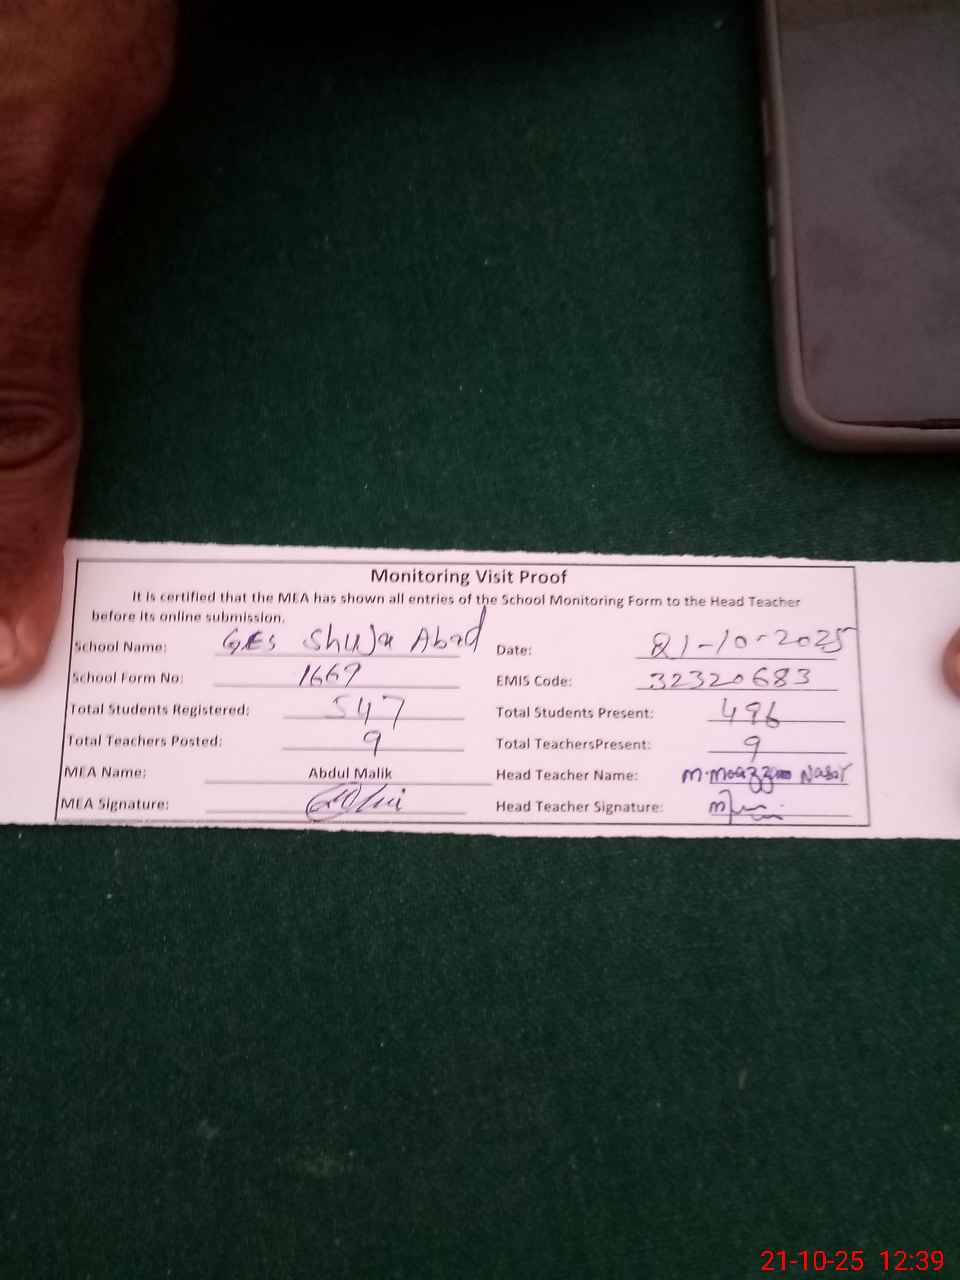 Monitoring Visit Proof
It is certified that the MEA has shown all entries of the School Monitoring Form to the Head Teacher
before its online submission.
School Name: GES Shuja Abad Date: 21-10-2025
School Form No: 1669 EMIS Code: 32320683
Total Students Registered: 547 Total Students Present: 496
Total Teachers Posted: 9 Total TeachersPresent: 9
MEA Name: Abdul Malik Head Teacher Name: M.Moazzam
MEA Signature: Head Teacher Signature:
21-10-25 12:39